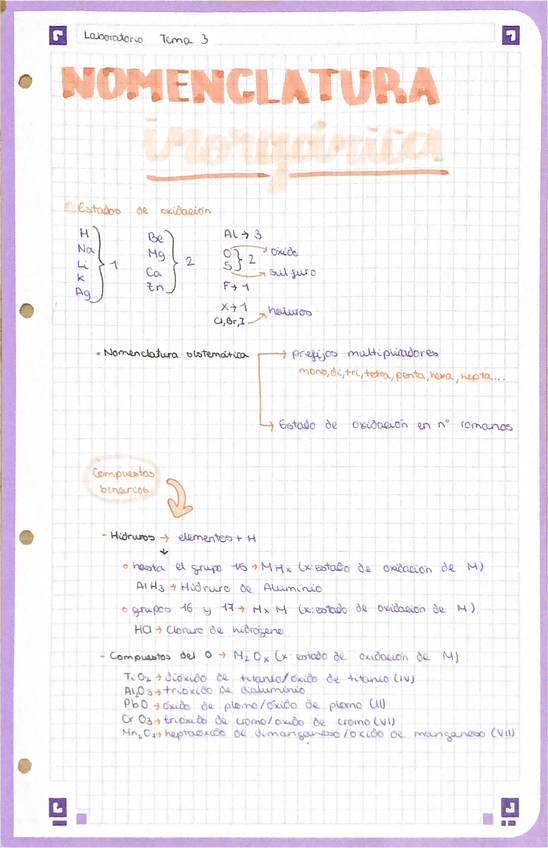 Laboratorio Tema 3
NOMENCLATURA
inorgánica
Estados de oxidación
H
Na
Li
K
Ag
1
Be
Mg
Ca
Zn
2
Al → 3
O → óxido
S → sulfuro
2
F → 1
X → 1
Cl, Br, I → haluros
• Nomenclatura sistemática → prefijos multiplicadores
mono, di, tri, tetra, penta, hexa, hepta...
→ Estado de oxidación en nº romanos
Compuestos
binarios
- Hidruros → elementos + H
↓
hasta el grupo 15 → MHx (x: estado de oxidación de M)
AlH3 → Hidruro de Aluminio
grupos 16 y 17 → HxM (x: estado de oxidación de M)
HCl → Cloruro de hidrógeno
- Compuestos del O → M2Ox (x: estado de oxidación de M)
TiO2 → dióxido de titanio/óxido de titanio (IV)
Al2O3 → trióxido de dialuminio
PbO → óxido de plomo/óxido de plomo (II)
CrO3 → trióxido de cromo/óxido de cromo (VI)
Mn2O7 → heptaóxido de dimanganeso/óxido de manganeso (VII)